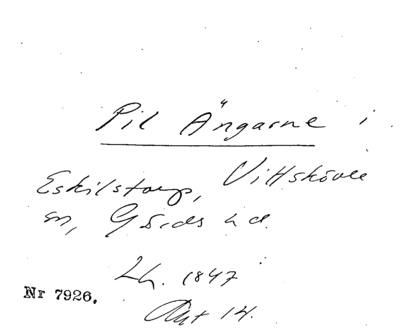 Pil Ängarne i
Eskilstorp, Vittskövle
sn, Gärds hd.
Lh. 1847
Akt 14.
Nr 7926.